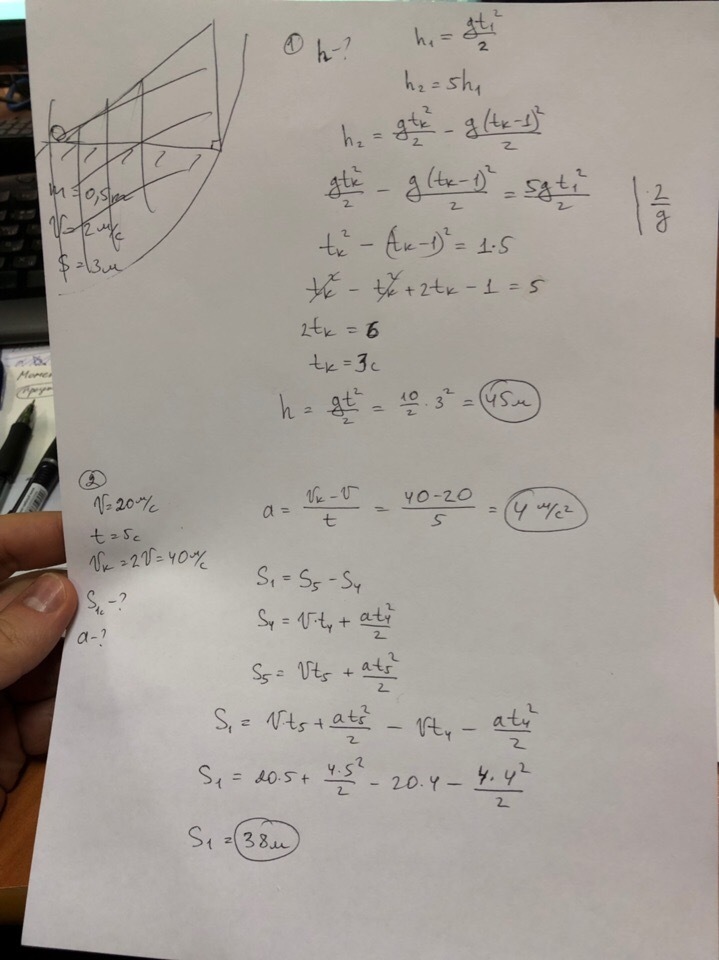 m = 0,5 кг
V = 2 м/с
S = 3 м
① h - ?
h₁ = gt₁²/2
h₂ = 5h₁
h₂ = gtₖ²/2 - g(tₖ-1)²/2
gtₖ²/2 - g(tₖ-1)²/2 = 5gt₁²/2 | · 2/g
tₖ² - (tₖ-1)² = 1·5
tₖ² - tₖ² + 2tₖ - 1 = 5
2tₖ = 6
tₖ = 3с
h = gt²/2 = 10/2 · 3² = 45м
②
V = 20 м/с
t = 5с
Vₖ = 2V = 40 м/с
S₁с - ?
a - ?
a = (Vₖ - V)/t = (40-20)/5 = 4 м/с²
S₁ = S₅ - S₄
S₄ = V·t₄ + at₄²/2
S₅ = Vt₅ + at₅²/2
S₁ = Vt₅ + at₅²/2 - Vt₄ - at₄²/2
S₁ = 20·5 + 4·5²/2 - 20·4 - 4·4²/2
S₁ = 38м